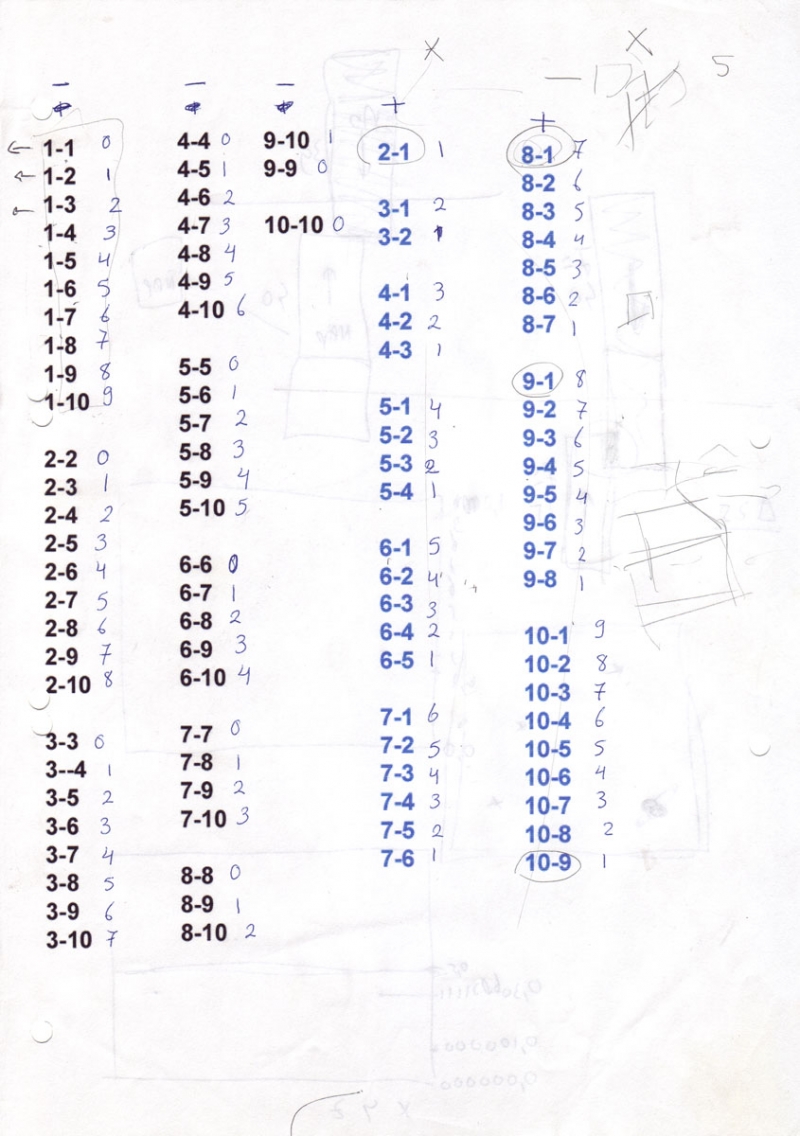 X
X
5
—
—
—
+
+
1-1 0
1-2 1
1-3 2
1-4 3
1-5 4
1-6 5
1-7 6
1-8 7
1-9 8
1-10 9
2-2 0
2-3 1
2-4 2
2-5 3
2-6 4
2-7 5
2-8 6
2-9 7
2-10 8
3-3 0
3--4 1
3-5 2
3-6 3
3-7 4
3-8 5
3-9 6
3-10 7
4-4 0
4-5 1
4-6 2
4-7 3
4-8 4
4-9 5
4-10 6
5-5 0
5-6 1
5-7 2
5-8 3
5-9 4
5-10 5
6-6 0
6-7 1
6-8 2
6-9 3
6-10 4
7-7 0
7-8 1
7-9 2
7-10 3
8-8 0
8-9 1
8-10 2
9-10 1
9-9 0
10-10 0
2-1 1
3-1 2
3-2 1
4-1 3
4-2 2
4-3 1
5-1 4
5-2 3
5-3 2
5-4 1
6-1 5
6-2 4
6-3 3
6-4 2
6-5 1
7-1 6
7-2 5
7-3 4
7-4 3
7-5 2
7-6 1
8-1 7
8-2 6
8-3 5
8-4 4
8-5 3
8-6 2
8-7 1
9-1 8
9-2 7
9-3 6
9-4 5
9-5 4
9-6 3
9-7 2
9-8 1
10-1 9
10-2 8
10-3 7
10-4 6
10-5 5
10-6 4
10-7 3
10-8 2
10-9 1